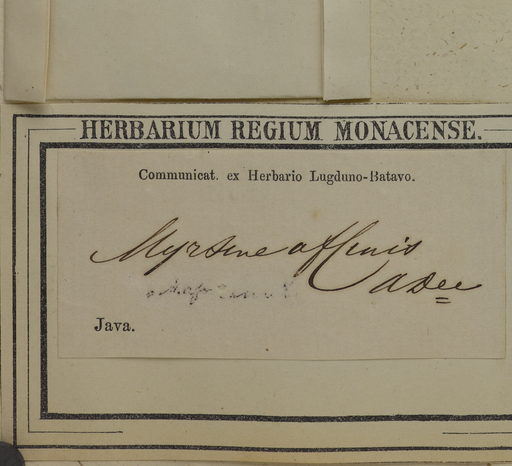 HERBARIUM REGIUM MONACENSE.
Communicat. ex Herbario Lugduno-Batavo.
Myrsine affinis
Java.